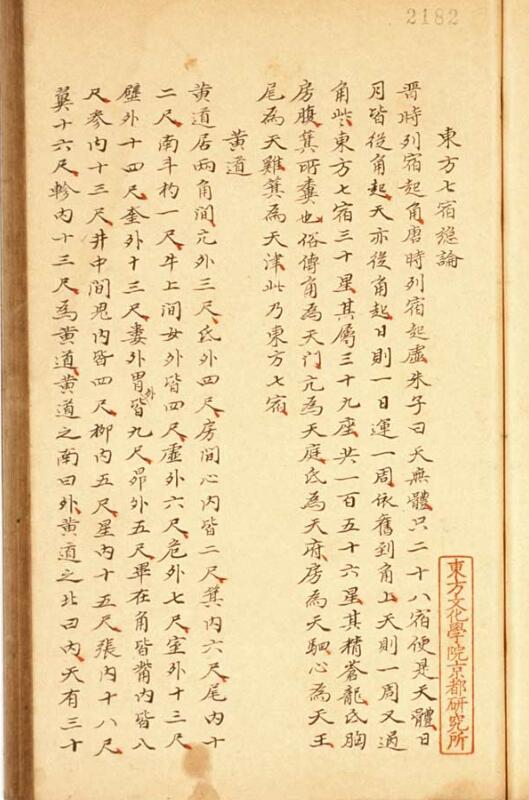 2182
東方七宿總論
晉時列宿起角唐時列宿起虛朱子曰天無體只二十八宿便是天體日
月皆從角起天亦從角起日則一日運一周依舊到角上天則一周又過
角些東方七宿三十星其屬三十九座共一百五十六星其精蒼龍氐胸
房腹箕所糞也俗傳角為天门亢為天庭氐為天府房為天駟心為天王
尾為天雞箕為天津此乃東方七宿
黃道
黃道居兩角間亢外三尺氐外四尺房間心內皆二尺箕內六尺尾內十
二尺南斗杓一尺牛上間女外皆四尺虛外六尺危外七尺室外十三尺
壁外十四尺奎外十三尺婁外胃外皆九尺昴外五尺畢在角皆觜內皆八
尺參內十三尺井中間鬼內皆四尺柳內五尺星內十五尺張內十八尺
翼十六尺軫內十三尺為黃道黃道之南曰外黃道之北曰內天有三十
東方文化學院京都研究所